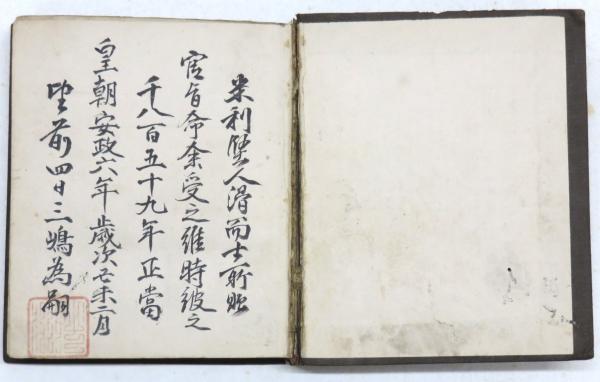 米利堅人滑而士所貽
官旨命余受之維時彼之
千八百五十九年正當
皇朝安政六年歳次己未二月
望前四日三嶋為嗣